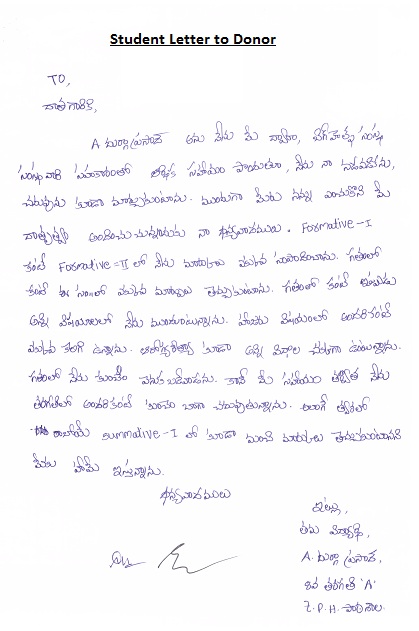 Student Letter to Donor
TO,
దాతగారికి,
A దుర్గా ప్రసాద్ అను నేను మీ ద్వారా, సంస్థ
సంస్థ వారి సహకారంతో ఆర్థిక సహాయం పొందుతూ, నేను నా నడవడికను,
చదువును కూడా మార్చుకుంటాను. ముందుగా మీకు నన్ను ఎంచుకొని మీ
దాతృత్వం అందించుచున్నందుకు నా ధన్యవాదములు. Formative-I
కంటే Formative-II లో నేను మార్కులు ఎక్కువ సంపాదించాను. గతంలో
కంటే ఈ సం.లో ఎక్కువ మార్కులు తెచ్చుకుంటాను. గతంలో కంటే ఇప్పుడు
అన్ని విషయాలలో నేను ముందుంటున్నాను. విషయంలో అందరికంటే
ఎక్కువ కలిగి ఉన్నాను. కూడా అన్ని విధాల చక్కగా ఉంటున్నాను.
గతంలో నేను కొంచెం వెనుకబడేవాడను. కానీ మీ సహాయం తర్వాత నేను
తరగతిలో అందరికంటే కొంచెం బాగా చదువుతున్నాను. అలాగే త్వరలో
రాబోయే summative-I లో కూడా మంచి మార్కులు తెచ్చుకుంటానని
మీకు హామీ ఇస్తున్నాను.
ధన్యవాదములు
ఇట్లు,
తమ విద్యార్థి,
A. దుర్గా ప్రసాద్,
8వ తరగతి 'A'
Z.P.H. పాఠశాల.